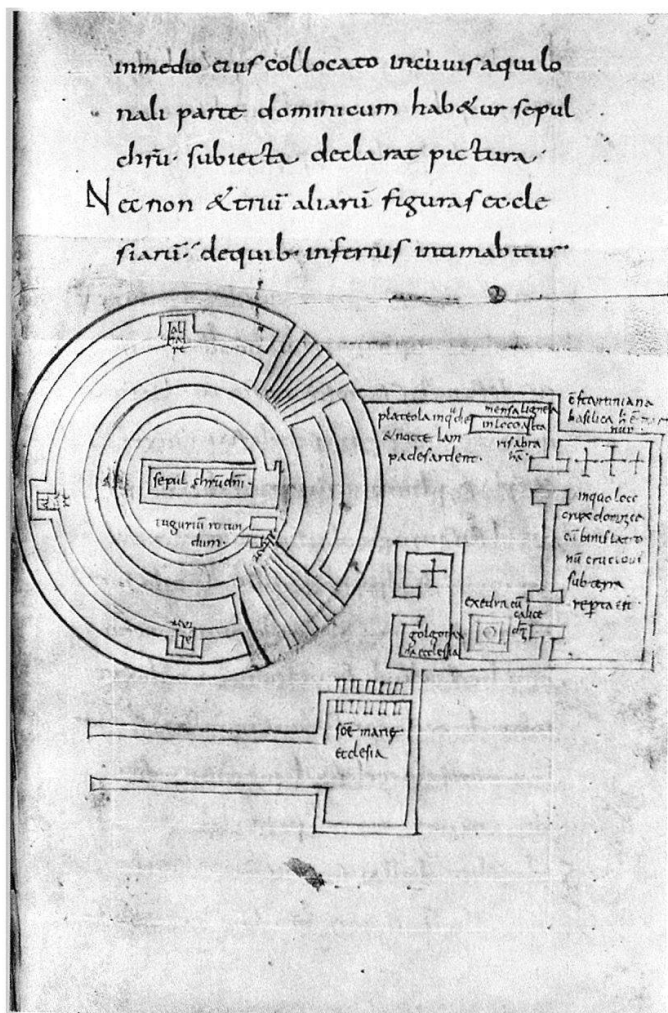 inmedio eius collocato incuius aquilo
nali parte dominicum hab&ur sepul
chrū· subiecta declarat pictura·
Nec non &triū aliarū figuras eccle
siarū· dequib· infernis intimabitur·
altare
sepulchrū dn̄i·
tuguriū rotun
dum·
plateola inqua die
&nocte lam
padesardent·
mensa lignea
inloco alta
ris abra
hā·
constantiniana
basilica
inquo loco
crux dominica
cū binis latro
nū crucibus
sub terra
reperta est
exedra cū
calice
dn̄i
golgotha
na ecclesia
scē marie
ecclesia